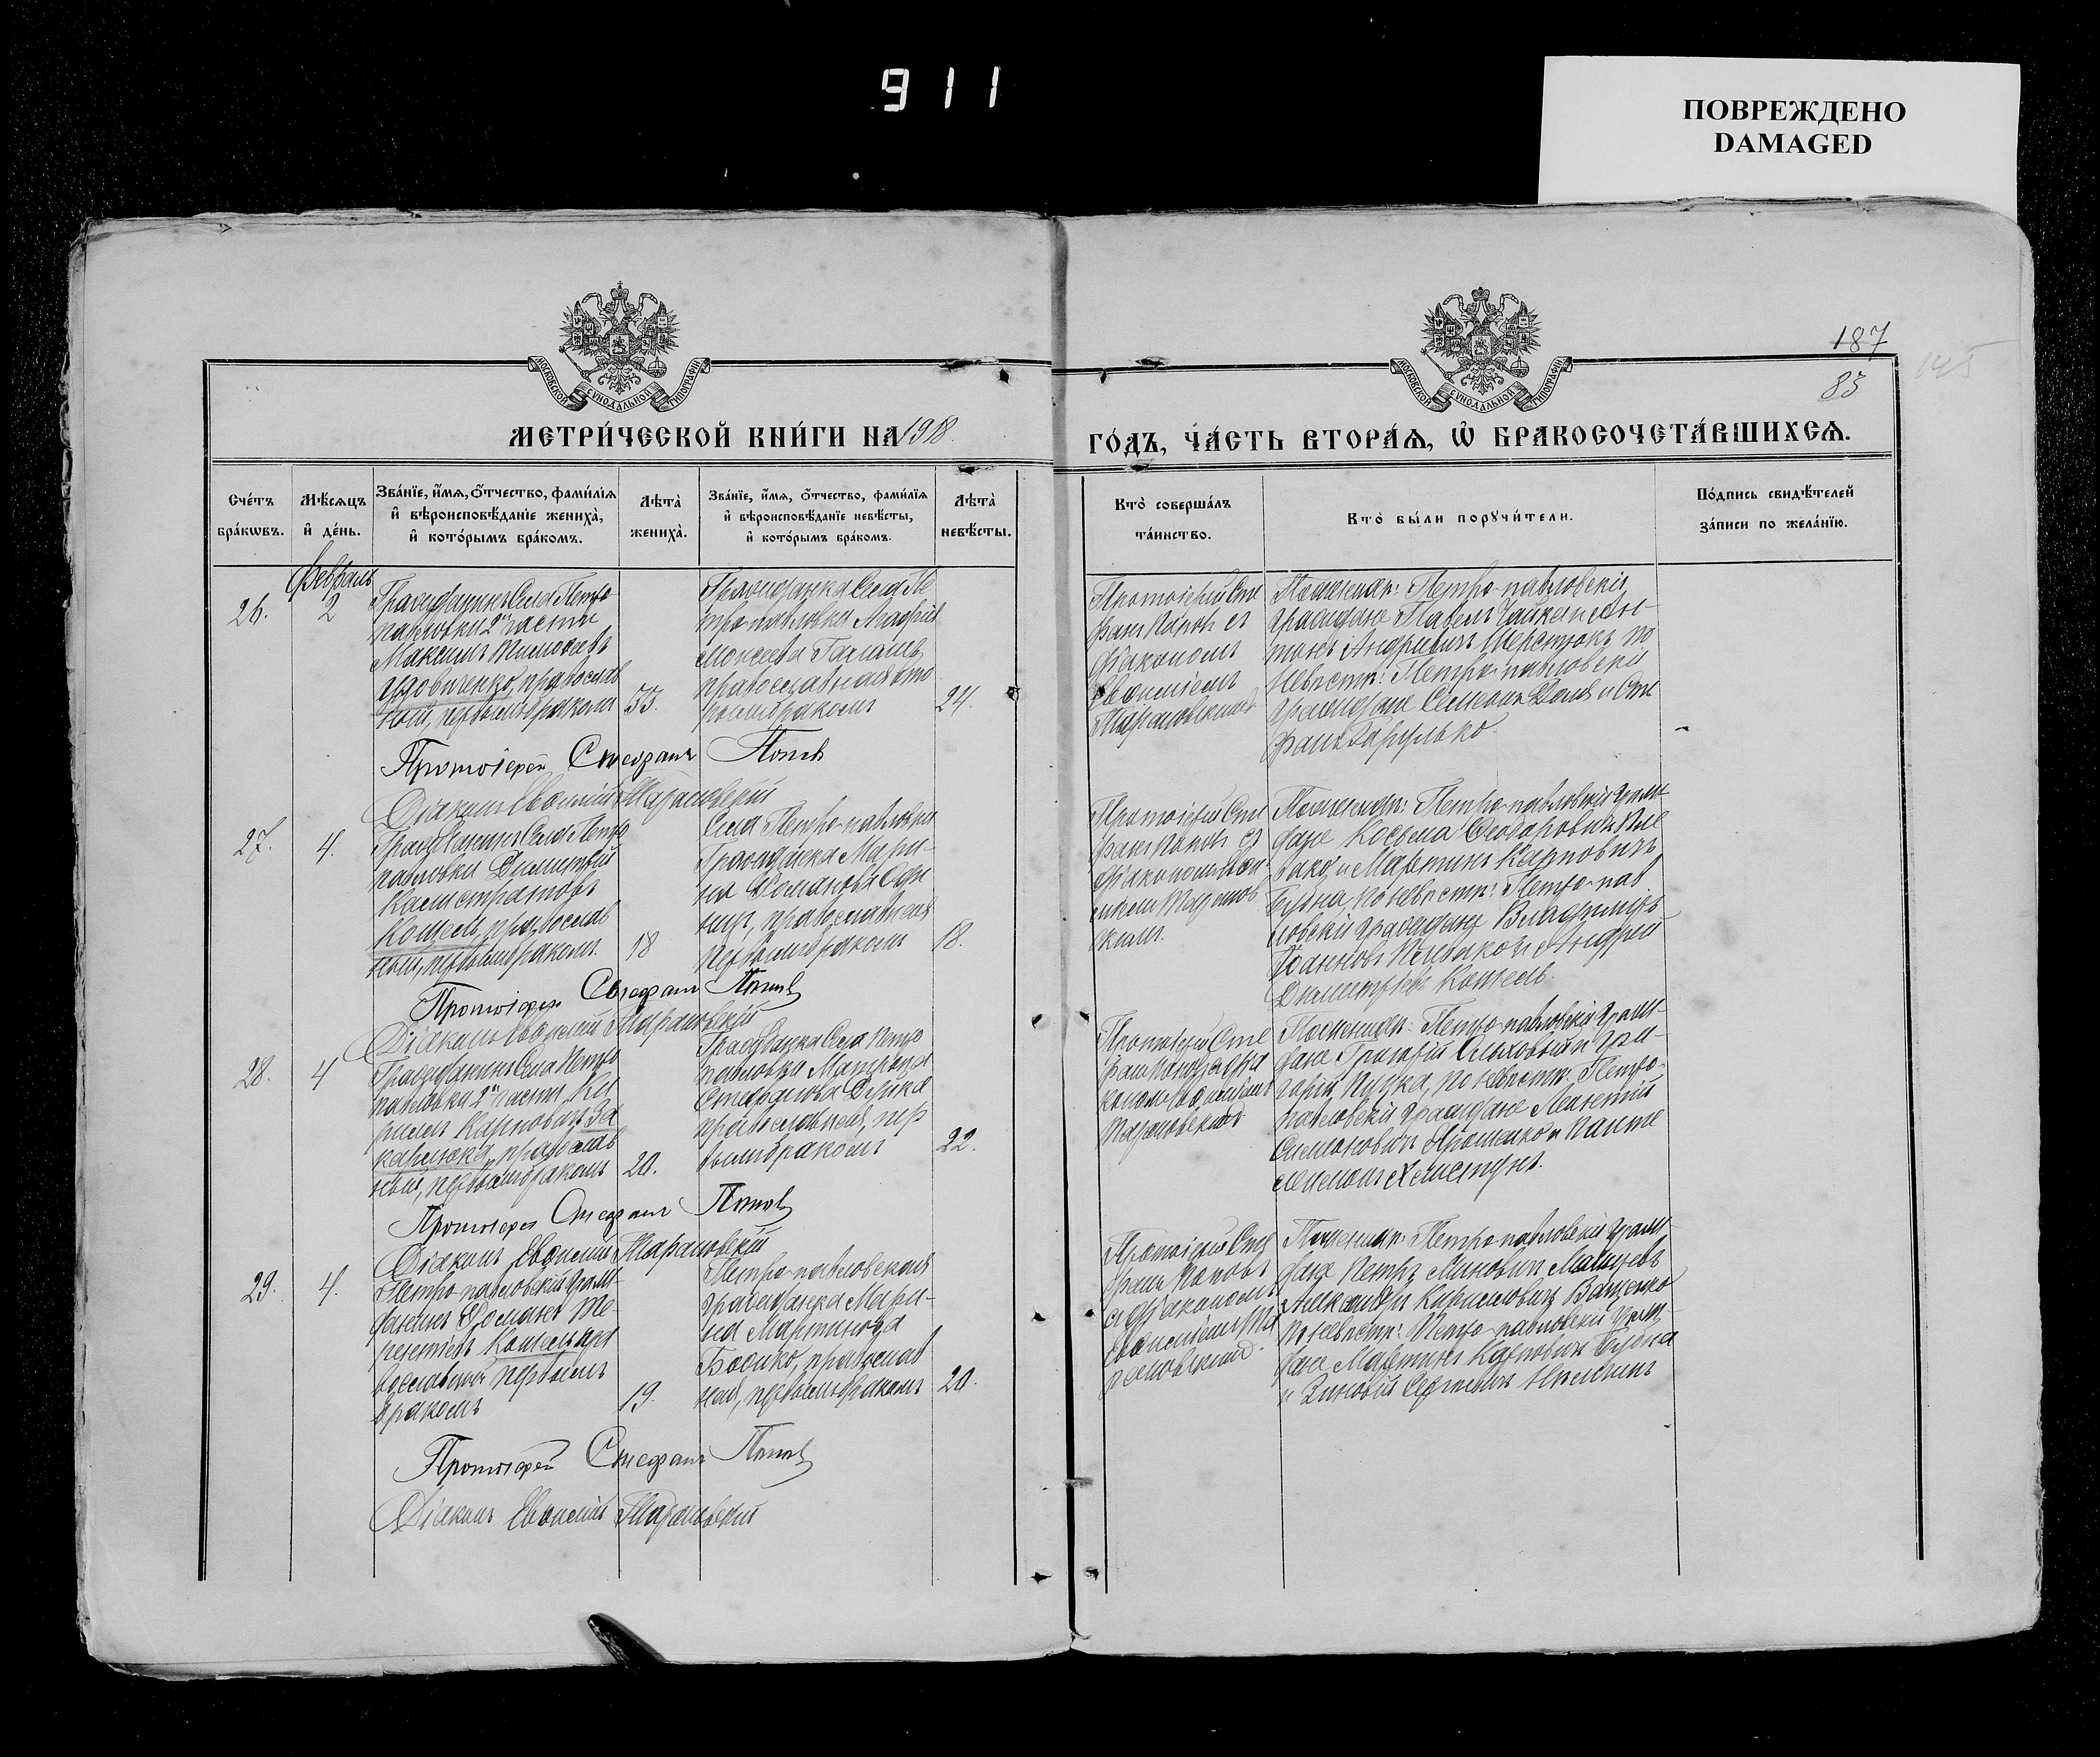 911
ПОВРЕЖДЕНО
DAMAGED
187
83
145
МОСКОВСКОЙ СѴНОДАЛЬНОЙ ТИПОГРАФІИ
МОСКОВСКОЙ СѴНОДАЛЬНОЙ ТИПОГРАФІИ
МЕТРИ́ЧЕСКОЙ КНИ́ГИ НА 1918.
ГО́ДЪ, ЧА́СТЬ ВТОРА́Ѧ, Ѡ҆ БРАКОСОЧЕТА́ВШИХСѦ.
Сче́тъ бра́кѡвъ.
Мѣ́сѧцъ и҆ де́нь.
Зва́нїе, и҆́мѧ, ѻ҆́тчество, фами́лїѧ
и҆ вѣроисповѣ́данїе жениха̀,
и҆ кото́рымъ бра́комъ.
Лѣта̀ жениха̀.
Зва́нїе, и҆́мѧ, ѻ҆́тчество, фами́лїѧ
и҆ вѣроисповѣ́данїе невѣ́сты,
и҆ кото́рымъ бра́комъ.
Лѣта̀ невѣ́сты.
Кто̀ соверша́лъ
та́инство.
Кто̀ бы́ли порꙋчи́тели.
По́дпись свидѣ́телей
за́писи по жела́нїю.
Февраль
26.
2
Гражданинъ Села Петро
павловки 2й части
Максимъ Тимофеевъ
православ
ный, первымъ бракомъ
33.
Гражданка Села Пе
тро-павловки
Моисеева
православная
бракомъ
24.
Протоіерей Сте
фанъ Поповъ съ
діакономъ
Евфиміемъ
Тарановскимъ
По женихѣ: Петро-павловскіе
граждане Павелъ Чайка и Ан-
тонъ Андреевичъ Шерстюкъ по
невѣстѣ: Петро-павловскіе
граждане Симеонъ и Сте
фанъ
Протоіерей Стефанъ Поповъ
Діаконъ Евфимій Тарановскій
27.
4.
Гражданинъ Села Петро
павловки Димитрій
Калистратовъ
Кошель, православ
ный, первымъ бракомъ.
18
Села Петро-павловки
Гражданка Мари-
на Романова
православная
первымъ бракомъ
18.
Протоіерей Сте
фанъ Поповъ съ
діакономъ Евфи
міемъ Таранов
скимъ.
По женихѣ: Петро-павловскіе граж-
дане Косьма Феодоровичъ
и Мартинъ Карповичъ
по невѣстѣ: Петро-пав
ловскіе граждане Владиміръ
Іоанновъ и Андрей
Димитріевъ Кошель.
Протоіерей Стефанъ Поповъ
Діаконъ Евфимій Тарановскій
28.
4
Гражданинъ Села Петро
павловки 2й части Ки
риллъ Карповичъ За
православ
ный, первымъ бракомъ
20.
Гражданка Села Петро
павловки Матрона
Стефанова
православная, пер
вымъ бракомъ
22.
Протоіерей Сте
фанъ Поповъ съ діа
кономъ Евфиміемъ
Тарановскимъ
По женихѣ: Петро-павловскіе граж-
дане Григорій и Гри-
горій по невѣстѣ: Петро-
павловскіе граждане
и Панте
леимонъ
Протоіерей Стефанъ Поповъ
Діаконъ Евфимій Тарановскій
29.
4.
Петро-павловскій граж-
данинъ Романъ Те-
рентіевъ Кошель пра
вославный первымъ
бракомъ
19.
Петро-павловская
гражданка Мари-
на Мартинова
православ
ная, первымъ бракомъ
20.
Протоіерей Сте
фанъ Поповъ
съ діакономъ
Евфиміемъ Та
рановскимъ.
По женихѣ: Петро-павловскіе граж-
дане Петръ
Александръ Кирилловичъ Ващенко
по невѣстѣ: Петро-павловскіе граж-
дане Мартинъ Карповичъ
и Зиновій
Протоіерей Стефанъ Поповъ
Діаконъ Евфимій Тарановскій